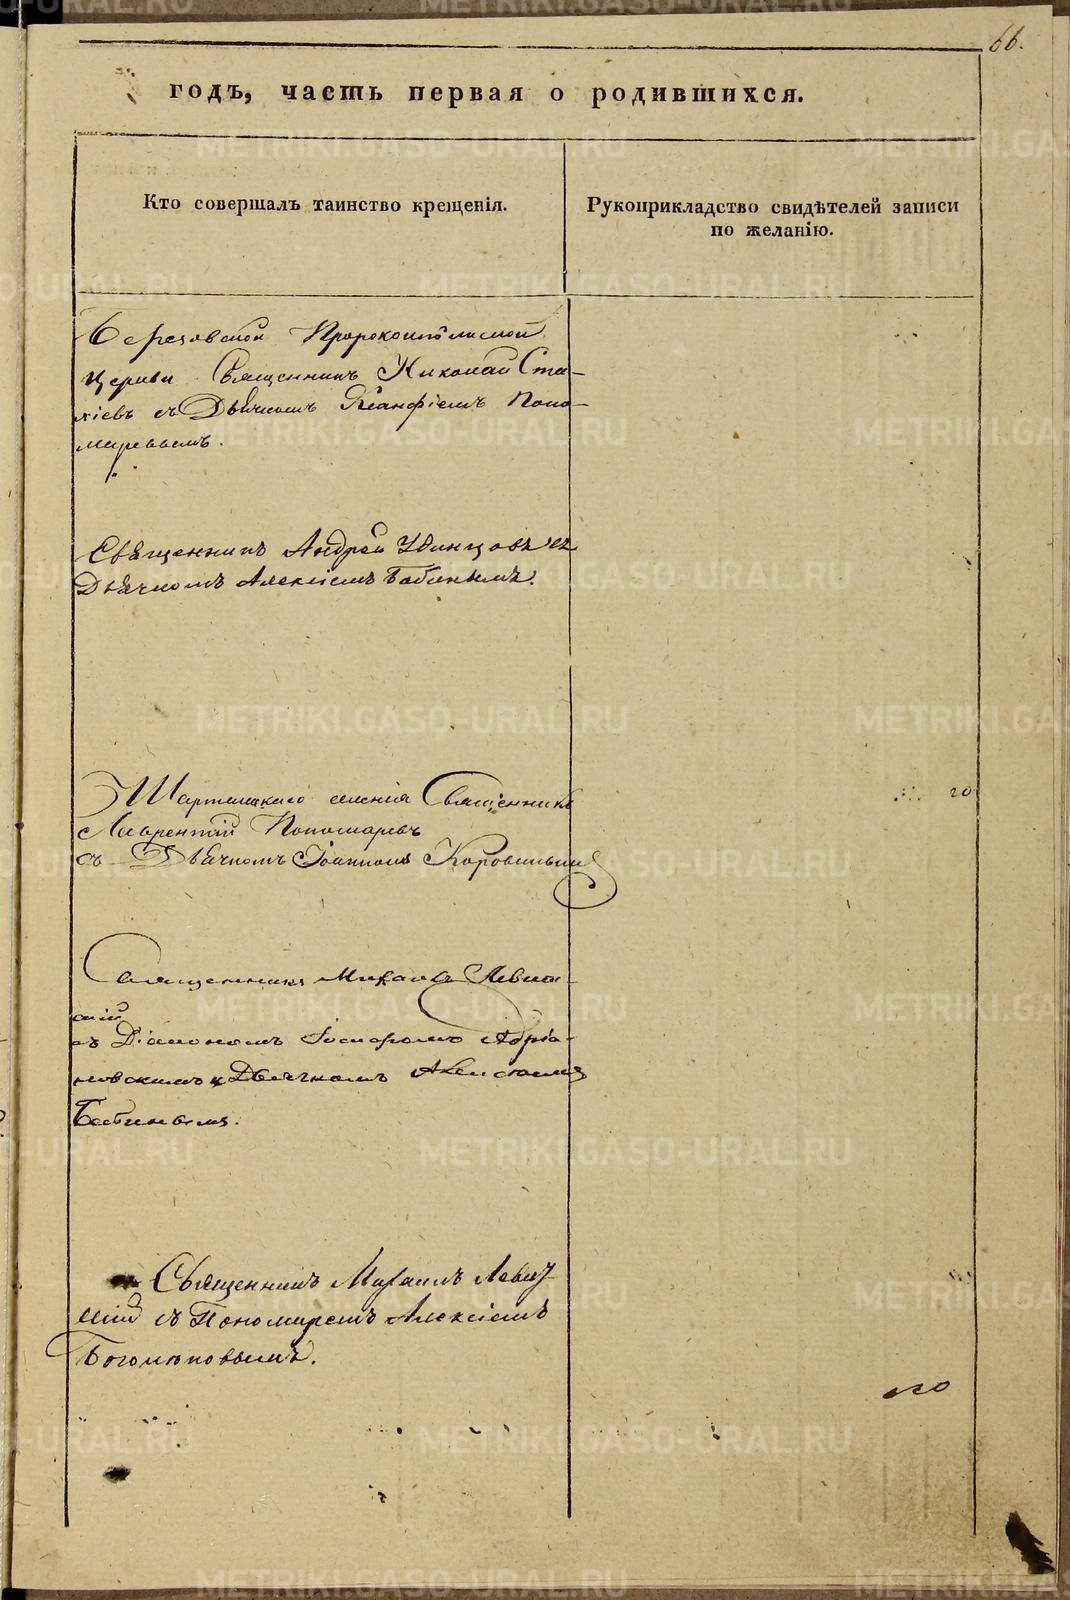 66.
годъ, часть первая о родившихся.
Кто совершалъ таинство крещенія.
Рукоприкладство свидѣтелей записи
по желанію.
Березовской Пророкоильинской
церкви Священникъ Николай Ста-
хіевъ съ Дьячкомъ Ксанфіемъ Поно-
маревымъ.
Священникъ Андрей Удинцовъ съ
Дьячкомъ Алексіемъ Бабинымъ.
Шарташскаго селенія Священникъ
Лаврентій Пономаревъ
съ Дьячкомъ Іоанномъ Коровинымъ
Священникъ Михаилъ Левит-
скій
съ Діакономъ Іосифомъ Адріа-
новскимъ и Дьячкомъ Алексіемъ
Бабинымъ.
Священникъ Михаилъ Левит-
скій съ Пономаремъ Алексіемъ
Богомоловымъ.
METRIKI.GASO-URAL.RU